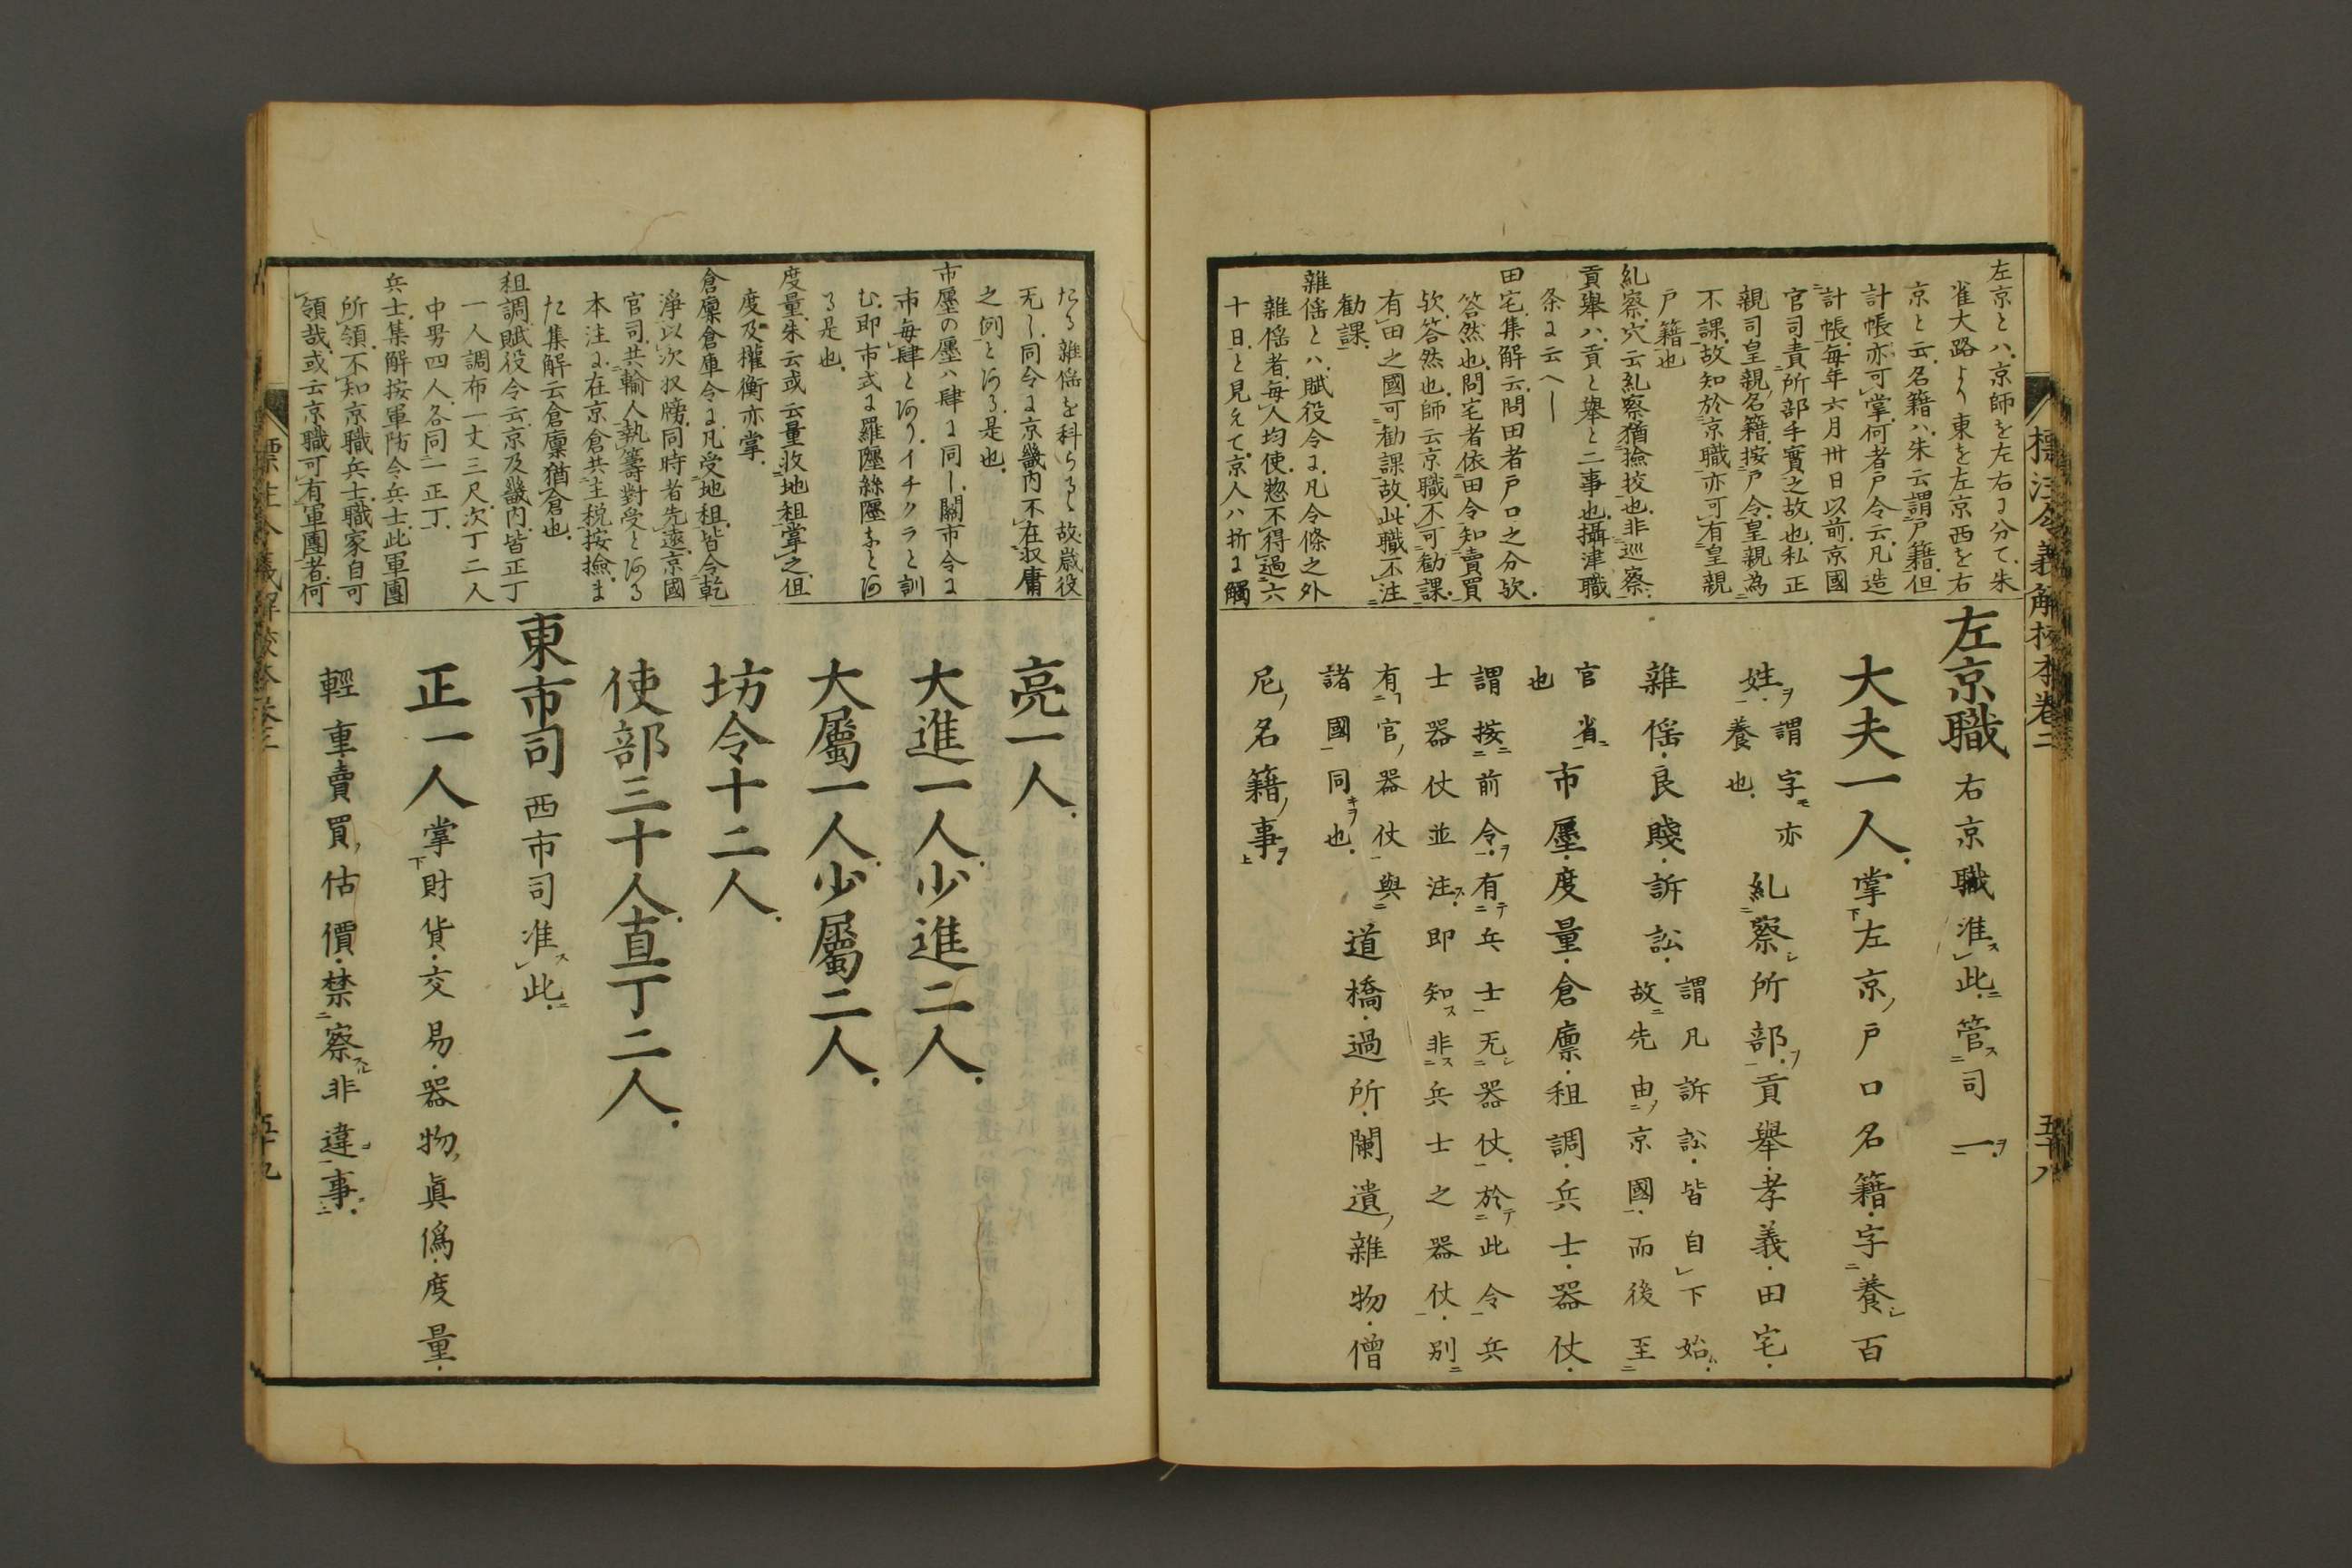 標注令義解校本卷二
五十八
左京とハ、京師を左右に分て、朱
雀大路より東を左京西を右
京と云、名籍ハ、朱云謂戸籍、但
計帳、亦可掌、何者戸令云、凡造
計帳、毎年六月卅日以前、京國
官司、責所部手實之故也、私、正
親司皇親名籍、按戸令、皇親為
不課、故知於京職亦可有皇親
戸籍也
糺察、穴云糺察猶撿挍也、非巡察、
貢舉ハ、貢と舉と二事也、攝津職
条に云へし
田宅、集解云、問田者戸口之分欤、
答然也、問宅者依田令知賣買
欤、答然也、師云京職不可勧課、
有田之國可勧課、故此職不注
勧課、
雜傜とハ、賦役令に、凡令條之外
雜傜者、毎人均使、惣不得過六
十日、と見えて、京人ハ折に觸
左京職右京職准此管司一
大夫一人掌左京戸口名籍字養百
姓謂字亦
養也糺察所部貢舉孝義田宅
雜傜良賤訴訟謂凡訴訟皆自下始
故先由京國而後至
官省
也市廛度量倉廩租調兵士器仗
謂按前令有兵士无器仗於此令兵
士器仗並注即知非兵士之器仗別
有官器仗與
諸國同也道橋過所闌遺雜物僧
尼名籍事
たる雜傜を科らるゝ故、歳役
无し、同令に京畿内不在収庸
之例とある是也、
市廛の廛ハ肆に同し、關市令に
市毎肆とあり、イチクラと訓
む、即市式に羅廛絲廛などあ
る是也、
度量、朱云或云量收地租掌之、但
度及權衡亦掌、
倉廩倉庫令に、凡受地租、皆令乾
淨、以次収牓、同時者先遠、京國
官司、共輸人執籌對受とある
本注に、在京倉共主税按撿、ま
た集解云倉廩猶倉也、
租調賦役令云、京及畿内、皆正丁
一人調布一丈三尺、次丁二人
中男四人、各同一正丁、
兵士、集解按軍防令兵士、此軍團
所領、不知京職兵士、職家自可
領哉、或云京職可有軍團者、何
亮一人
大進一人少進二人
大屬一人少屬二人
坊令十二人
使部三十人直丁二人
東市司西市司准此
正一人掌財貨交易器物眞僞度量
輕重賣買估價禁察非違事
標注令義解校本卷二
五十九